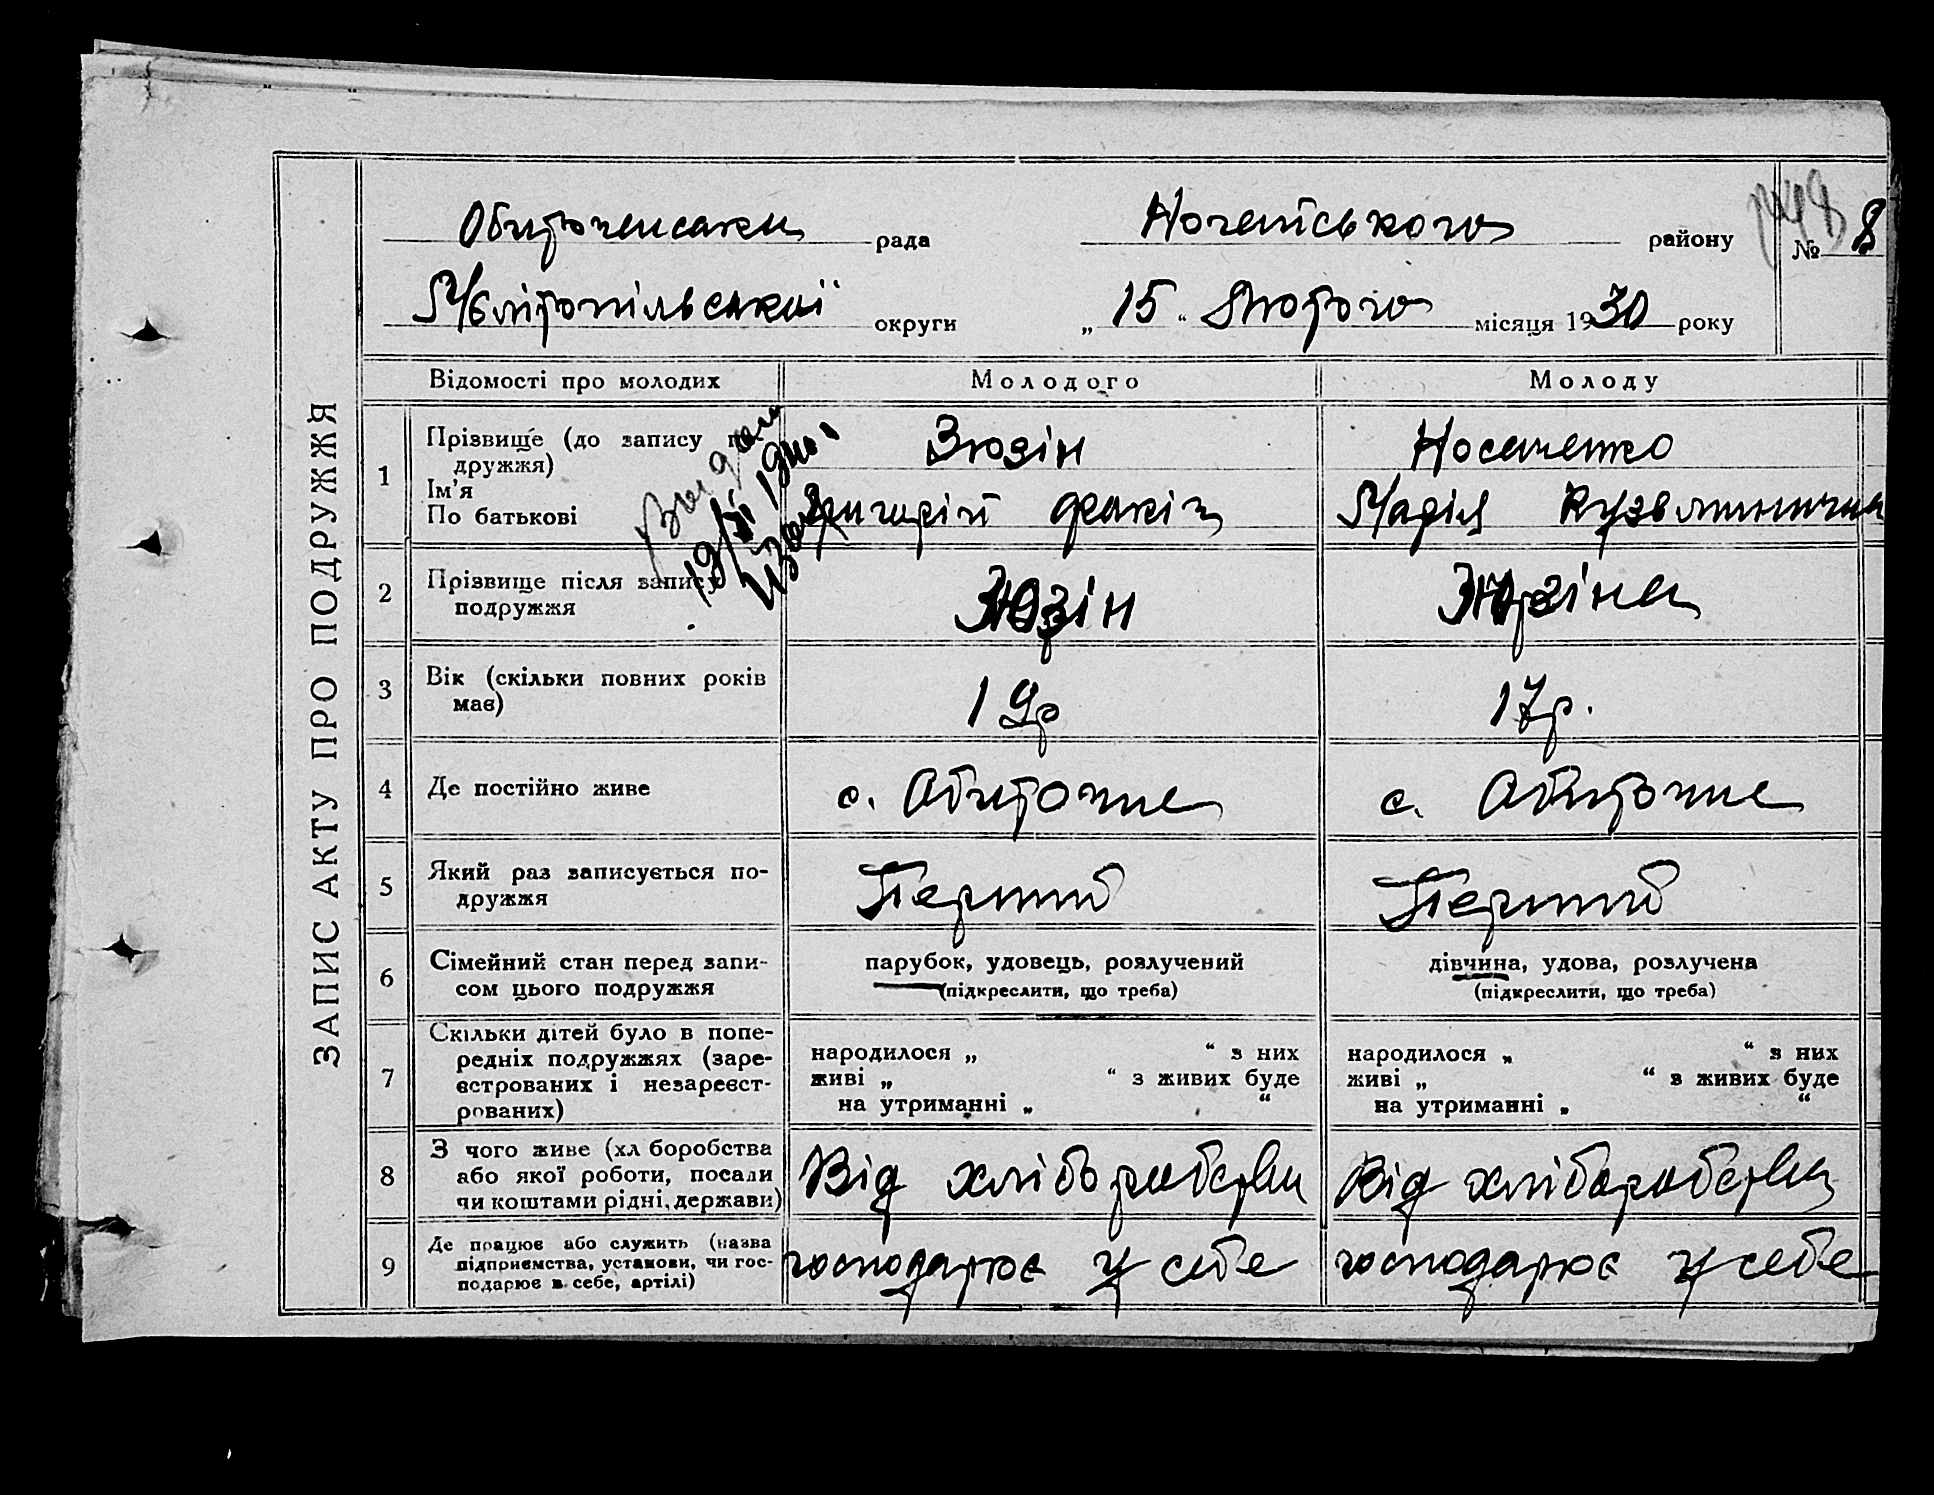 ЗАПИС АКТУ ПРО ПОДРУЖЖЯ
Обиточенська рада Ногайського району № 8
Мелітопільської округи „15“ Лютого місяця 1930 року
Відомості про молодих Молодого Молоду
1 Прізвище (до запису по-
дружжя) Зюзін Носаченко
Ім'я
По батькові Григорій Марія Кузьминична
2 Прізвище після запису
подружжя Зюзін Зюзіна
3 Вік (скільки повних років
має) 19р 17р.
4 Де постійно живе с. Обиточне с. Обиточне
5 Який раз записується по-
дружжя Перший Перший
6 Сімейний стан перед запи-
сом цього подружжя
парубок, удовець, розлучений дівчина, удова, розлучена
(підкреслити, що треба) (підкреслити, що треба)
7 Скільки дітей було в попе-
редніх подружжях (заре-
єстрованих і незареєст-
рованих)
народилося „ “ з них народилося „ “ з них
живі „ “ з живих буде живі „ “ з живих буде
на утриманні „ “ на утриманні „ “
8 З чого живе (хл боробства
або якої роботи, посади
чи коштами рідні, держави)
Від хліборобства Від хліборобства
9 Де працює або служить (назва
підприємства, установи, чи гос-
подарює в себе, артілі)
господарює у себе господарює у себе